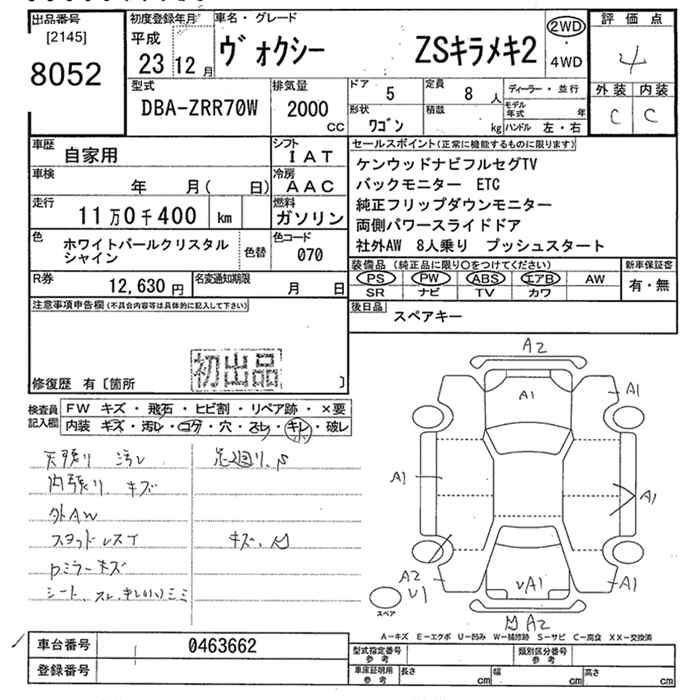 出品番号
[2145]
8052
初度登録年月
平成
23 12月
車名・グレード
ヴォクシー ZSキラメキ2
2WD
・
4WD
評価点
4
外装 内装
C C
型式
DBA-ZRR70W
排気量
2000
CC
ドア
5
定員
8 人
形状
ワゴン
積載
kg
ディーラー・並行
モデル年式 年
ハンドル 左・右
車歴
自家用
シフト
IAT
車検
年 月( 日)
冷房
AAC
走行
11万0千400 km
燃料
ガソリン
色
ホワイトパールクリスタル
シャイン
色替
色コード
070
R券
12,630 円
名変通知期限
月 日
セールスポイント(正常に機能するものに限ります)
ケンウッドナビフルセグTV
バックモニター ETC
純正フリップダウンモニター
両側パワースライドドア
社外AW 8人乗り プッシュスタート
装備品 (純正品に限り〇をつけてください)
PS PW ABS エアB AW
SR ナビ TV カワ
新車保証書
有・無
後日品
スペアキー
注意事項申告欄(不具合内容等は具体的に記入して下さい)
初出品
修復歴 有〔箇所 〕
検査員
記入欄
FW キズ・飛石・ヒビ割・リペア跡・×要
内装 キズ・汚レ・コゲ・穴・スレ・キレ・破レ
天張り 汚レ
内張り、キズ
外AW
スタッドレス
Dミラーキズ
シート、スレ、キレ
足廻り、S
キズ、
A2
A1
A1
A1
A1
A2
U1
A1
A1
A2
スペア
A-キズ E-エクボ U-凹み W-補修跡 S-サビ C-腐食 XX-交換済
車台番号
0463662
登録番号
型式指定番号
参考
類別区分番号
参考
車庫証明用
参考
長さ cm
幅 cm
高さ cm